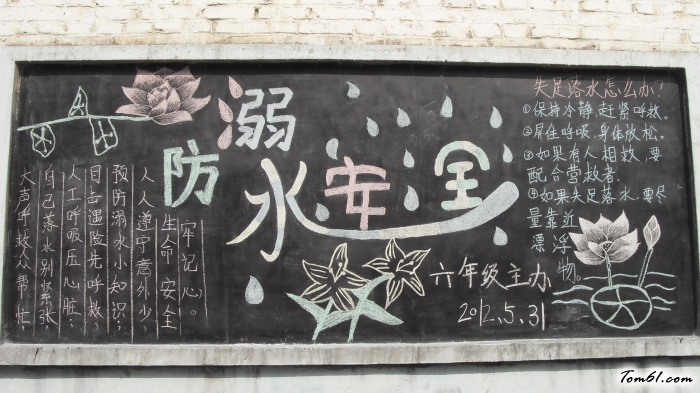 防溺水安全
大声呼救众帮忙；
自己落水别紧张，
人工呼吸压心脏；
目击遇险先呼救，
预防溺水小知识；
人人遵守意外少，
生命安全
牢记心。
失足落水怎么办？
①保持冷静，赶紧呼救。
②屏住呼吸，身体放松。
③如果有人相救，要
配合营救者。
④如果失足落水，要尽
量靠近
漂浮
物。
六年级主办
2012、5、31
Tom61.com